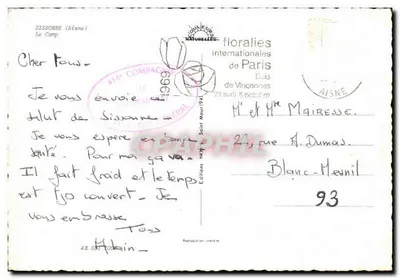 SISSONNE (Aisne)
Le Camp
COULEURS
NATURELLES
1969
floralies
internationales
de Paris
Bois
de Vincennes
23 avril 5 octobre
AISNE
COMPAGNIE
Cher tous.
Je vous envoie ce
salut de Sissonne.
Je vous espère en bonne
santé. Pour moi ça va.
Il fait froid et le temps
est tjo couvert. Je
vous embrasse
Tous
Alain.
Mr et Mme Mairesse.
22, rue A. Dumas.
Blanc-Mesnil
93
Reproduction interdite